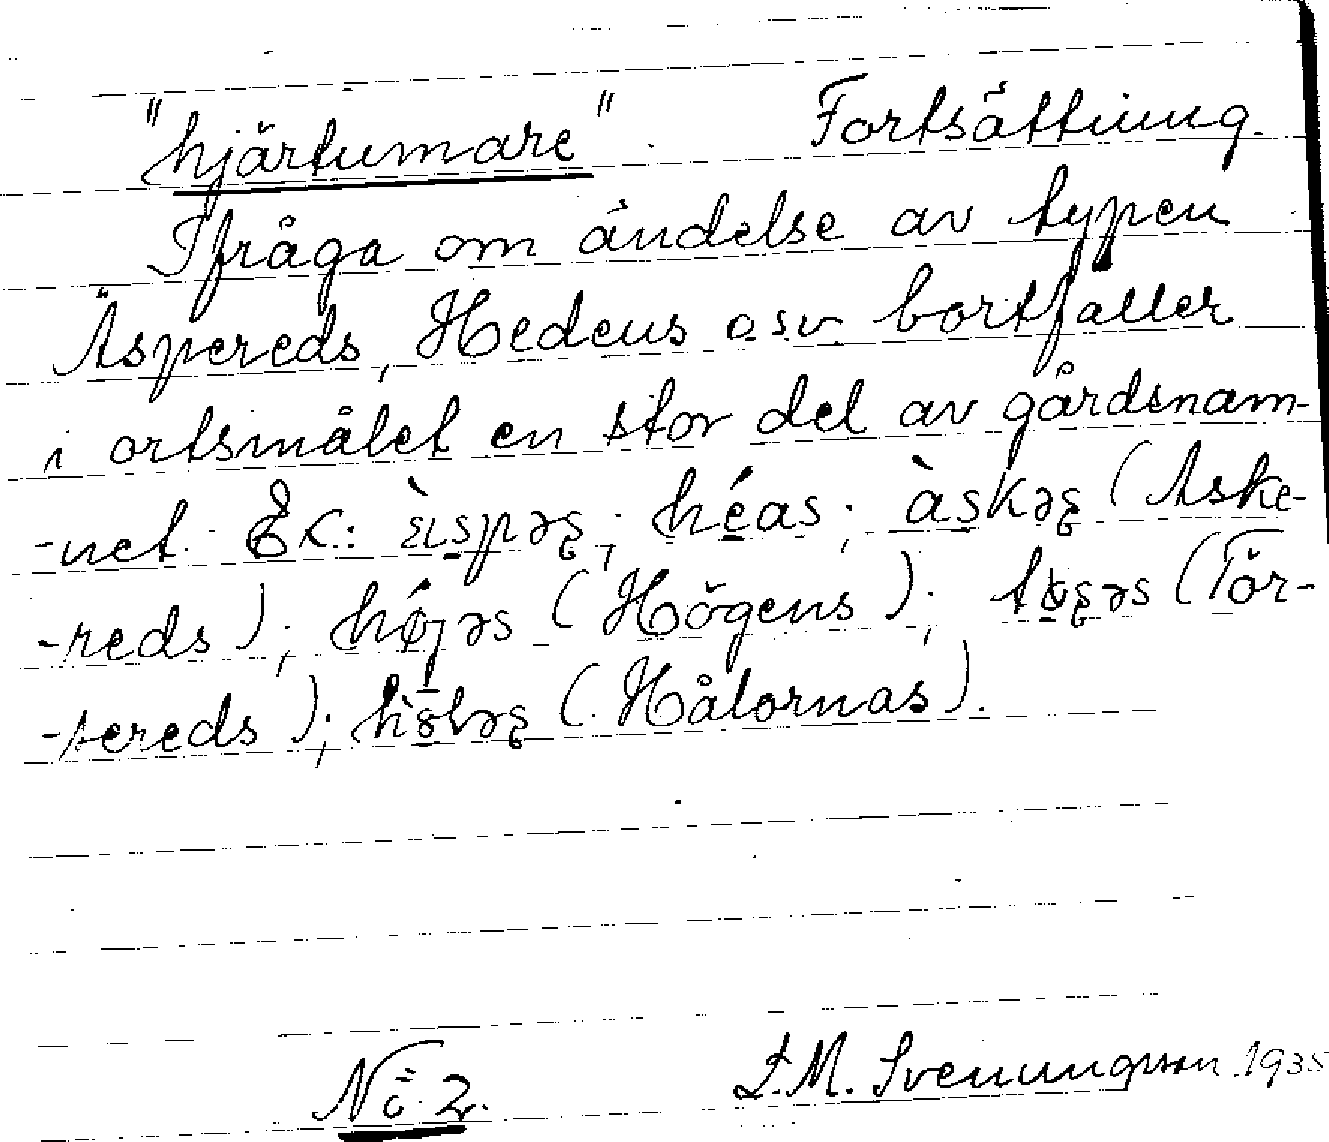 "hjärtumare". Fortsättning.
Ifråga om ändelse av typen
Äspereds, Hedens osv bortfaller
i ortsmålet en stor del av gårdsnam-
-net. Ex: héas; àskəs (Aske-
-reds); (Högens); (Tör-
-sereds); (Hålornas).
No 2. L.M. Svenungsson 1935